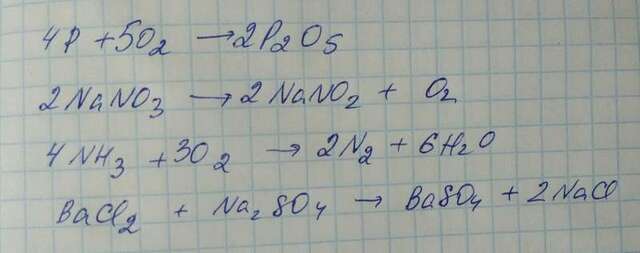 4P + 5O₂ → 2P₂O₅
2NaNO₃ → 2NaNO₂ + O₂
4NH₃ + 3O₂ → 2N₂ + 6H₂O
BaCl₂ + Na₂SO₄ → BaSO₄ + 2NaCl